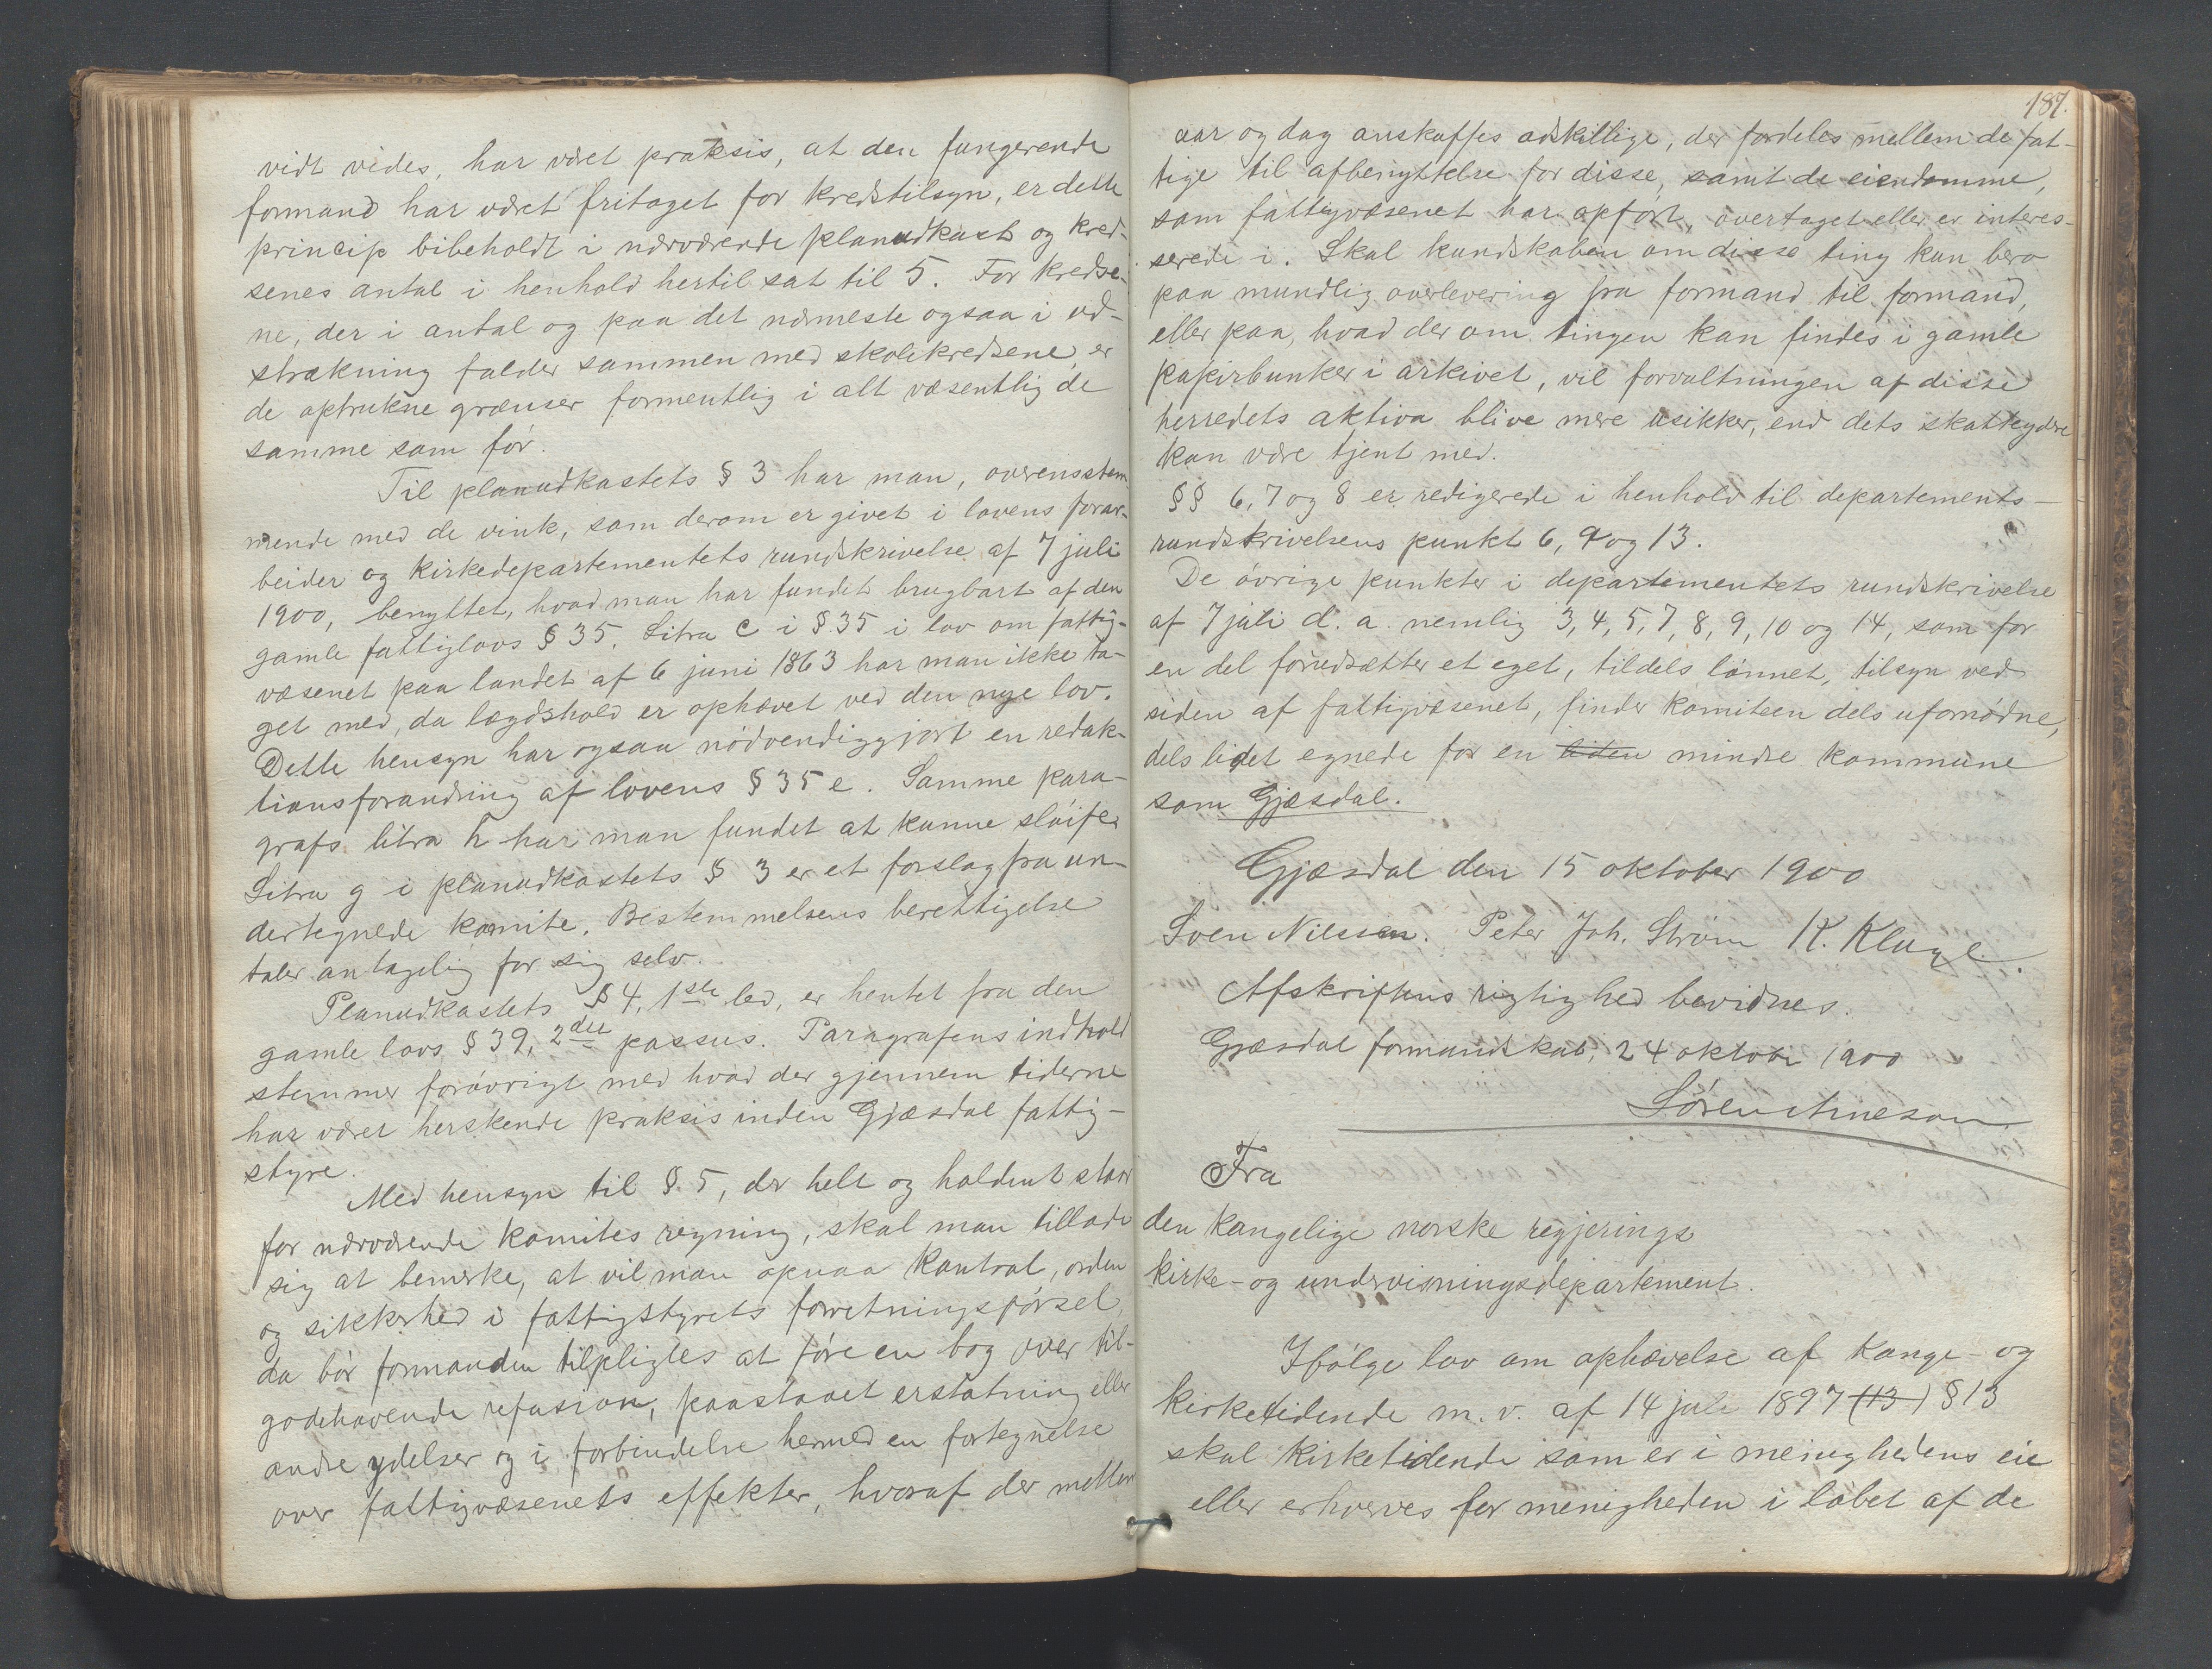 vidt vides, har været praksis, at den fungerende
formand har været fritaget for kredstilsyn, er dette
princip bibeholdt i nærværende planudkast og kred-
senes antal i henhold hertil sat til 5. For kredse-
ne, der i antal og paa det nærmeste ogsaa i ud-
strækning falder sammen med skolekredsene, er
de optrukne grænser formentlig i alt væsentlig de
samme som før.
Til planudkastets § 3 har man, overensstem
mende med de vink, som derom er givet i lovens forar-
beider og kirkedepartementets rundskrivelse af 7 juli
1900, benyttet, hvad man har fundet brugbart af den
gamle fattiglovs § 35. Litra c i § 35 i lov om fattig-
væsenet paa landet af 6 juni 1863 har man ikke ta-
get med, da lægdshold er ophævet ved den nye lov.
Dette hensyn har ogsaa nødvendiggjort en redak-
tionsforandring af lovens § 35 e. Samme para-
grafs litra h har man fundet at kunne sløife.
Litra g i planudkastets § 3 er et forslag fra un-
dertegnede komite. Bestemmelsens berettigelse
taler antagelig for sig selv.
Planudkastets § 4, 1ste led, er hentet fra den
gamle lovs § 39, 2det passus. Paragrafens indhold
stemmer forøvrigt med hvad der gjennem tiderne
har været herskende praksis inden Gjæsdal fattig-
styre.
Med hensyn til § 5, der helt og holdent staar
for nærværende komites regning, skal man tillade
sig at bemerke, at vil man opnaa kontrol, orden
og sikkerhed i fattigstyrets forretningsførsel,
da bør formanden tilpligtes at føre en bog over til-
godehavende refusion, paastaaet erstatning eller
andre ydelser og i forbindelse hermed en fortegnelse
over fattigvæsenets effekter, hvoraf der mellem
187.
aar og dag anskaffes adskillige, der fordeles mellem de fat-
tige til afbenyttelse for disse, samt de eiendomme,
som fattigvæsenet har opført, overtaget eller er interes-
serede i. Skal kundskaben om disse ting kun bero
paa mundlig overlevering fra formand til formand,
eller paa, hvad der om tingen kan findes i gamle
papirbunker i arkivet, vil forvaltningen af disse
herredets aktiva blive mere usikker, end dets skatteydere
kan være tjent med.
§§ 6, 7 og 8 er redigerede i henhold til departements-
rundskrivelsens punkt 6, 9 og 13.
De øvrige punkter i departementets rundskrivelse
af 7 juli d. a. nemlig 3, 4, 5, 7, 8, 9, 10 og 14, som for
en del forudsætter et eget, tildels lønnet, tilsyn ved
siden af fattigvæsenet, finder komiteen dels ufornødne,
dels lidet egnede for en liden mindre kommune
som Gjæsdal.
Gjæsdal den 15 oktober 1900
Sven Nilssen. Peter Joh. Strøm K. Kluge.
Afskriftens rigtighed bevidnes.
Gjæsdal formandskab, 24 oktober 1900
Søren Arneson
Fra
den kongelige norske regjerings
kirke- og undervisningsdepartement.
Ifølge lov om ophævelse af konge- og
kirketidende m. v. af 14 juli 1897 (13) § 13
skal kirketidende som er i menighedens eie
eller erhverves for menigheden i løbet af de